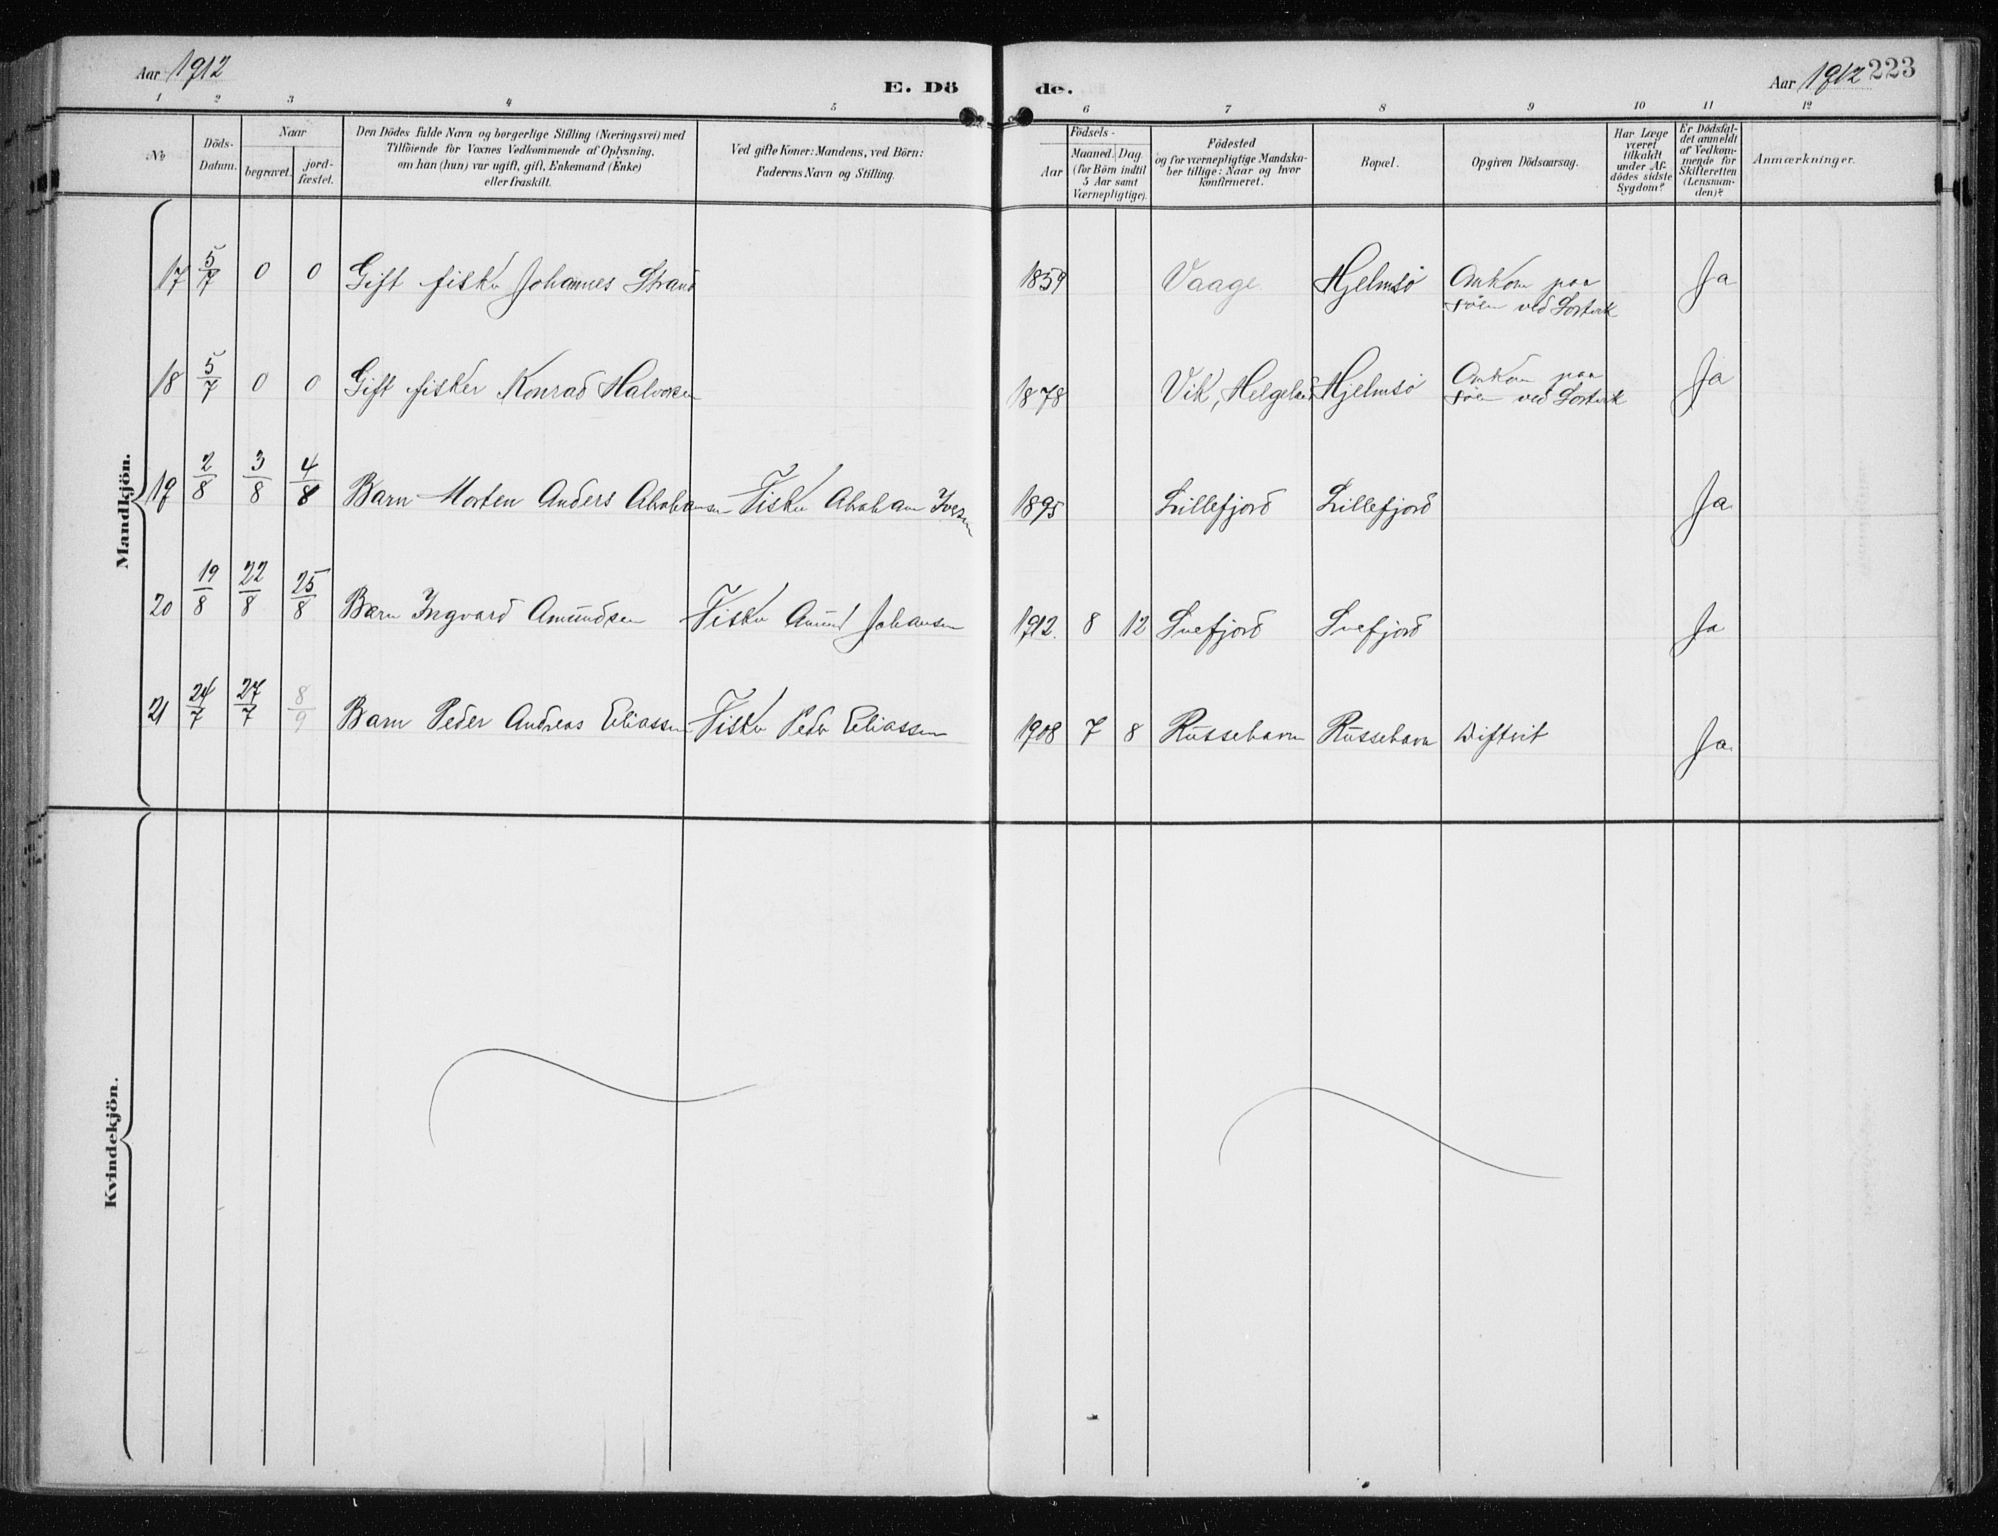 Aar 1912
E. Dö
de.
Aar 1912 223
1 2 3 4 5 6 7 8 9 10 11 12
No
Döds-
Datum.
Naar
begravet.
jord-
fæstet.
Den Dödes fulde Navn og borgerlige Stilling (Næringsvei) med
Tilföiende for Voxnes Vedkommende af Oplysning,
om han (hun) var ugift, gift, Enkemand (Enke)
eller fraskilt.
Ved gifte Koner: Mandens, ved Börn:
Faderens Navn og Stilling.
Födsels-
Aar
Maaned. Dag
(for Börn indtil
5 Aar samt
Værnepligtige)
Födested
og for værnepligtige Mandska-
ber tillige: Naar og hvor
konfirmeret.
Bopæl.
Opgiven Dödsaarsag.
Har Læge
været
tilkaldt
under Af-
dödes sidste
Sygdom?
Er Dödsfal-
det anmeldt
af Vedkom-
mende for
Skifteretten
(Lensman-
den)?
Anmærkninger.
Mandkjön.
17 5/7 0 0 Gift fisker Johannes Strand 1859 Vaage. Hjelmsö Omkom paa Ja
ved
18 5/7 0 0 Gift fisker Konrad Halvorsen 1878 Vik, Helgeland Hjelmsö Omkom paa Ja
ved
19 2/8 3/8 4/8 Barn Morten Anders Abrahamsen Fisker Abraham Iversen 1895 Lillefjord Lillefjord Ja
20 19/8 22/8 25/8 Barn Ingvard Amundsen Fisker Amund Johansen 1912. 8 12 Snefjord Snefjord Ja
21 24/7 27/7 8/9 Barn Peder Andreas Eliassen Fisker Peder Eliassen 1908 7 8 Russehavn Russehavn Diftrit Ja
Kvindekjön.